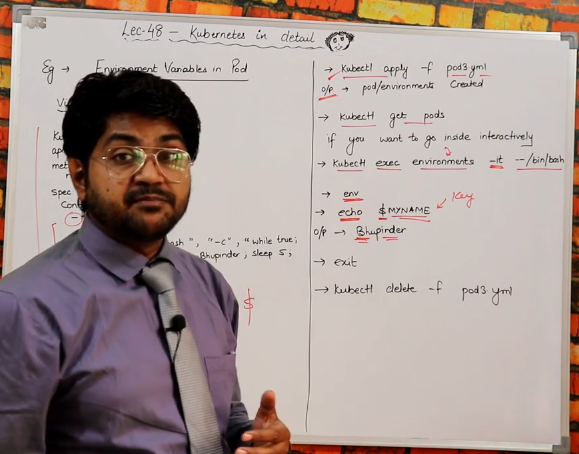 Lec-48 - Kubernetes in detail
Eg → Environment Variables in Pod
Vi
Ku
ap
met
spec
Cont
ash", "-c", "while true;
Bhupinder ; sleep 5 ;
$
→ Kubectl apply -f pod3 yml
o/p → pod/environments Created
→ Kubectl get pods
if you want to go inside interactively
→ Kubectl exec environments -it --/bin/bash
→ env
→ echo $MYNAME
Key
o/p → Bhupinder
→ exit
→ Kubectl delete -f pod3 yml